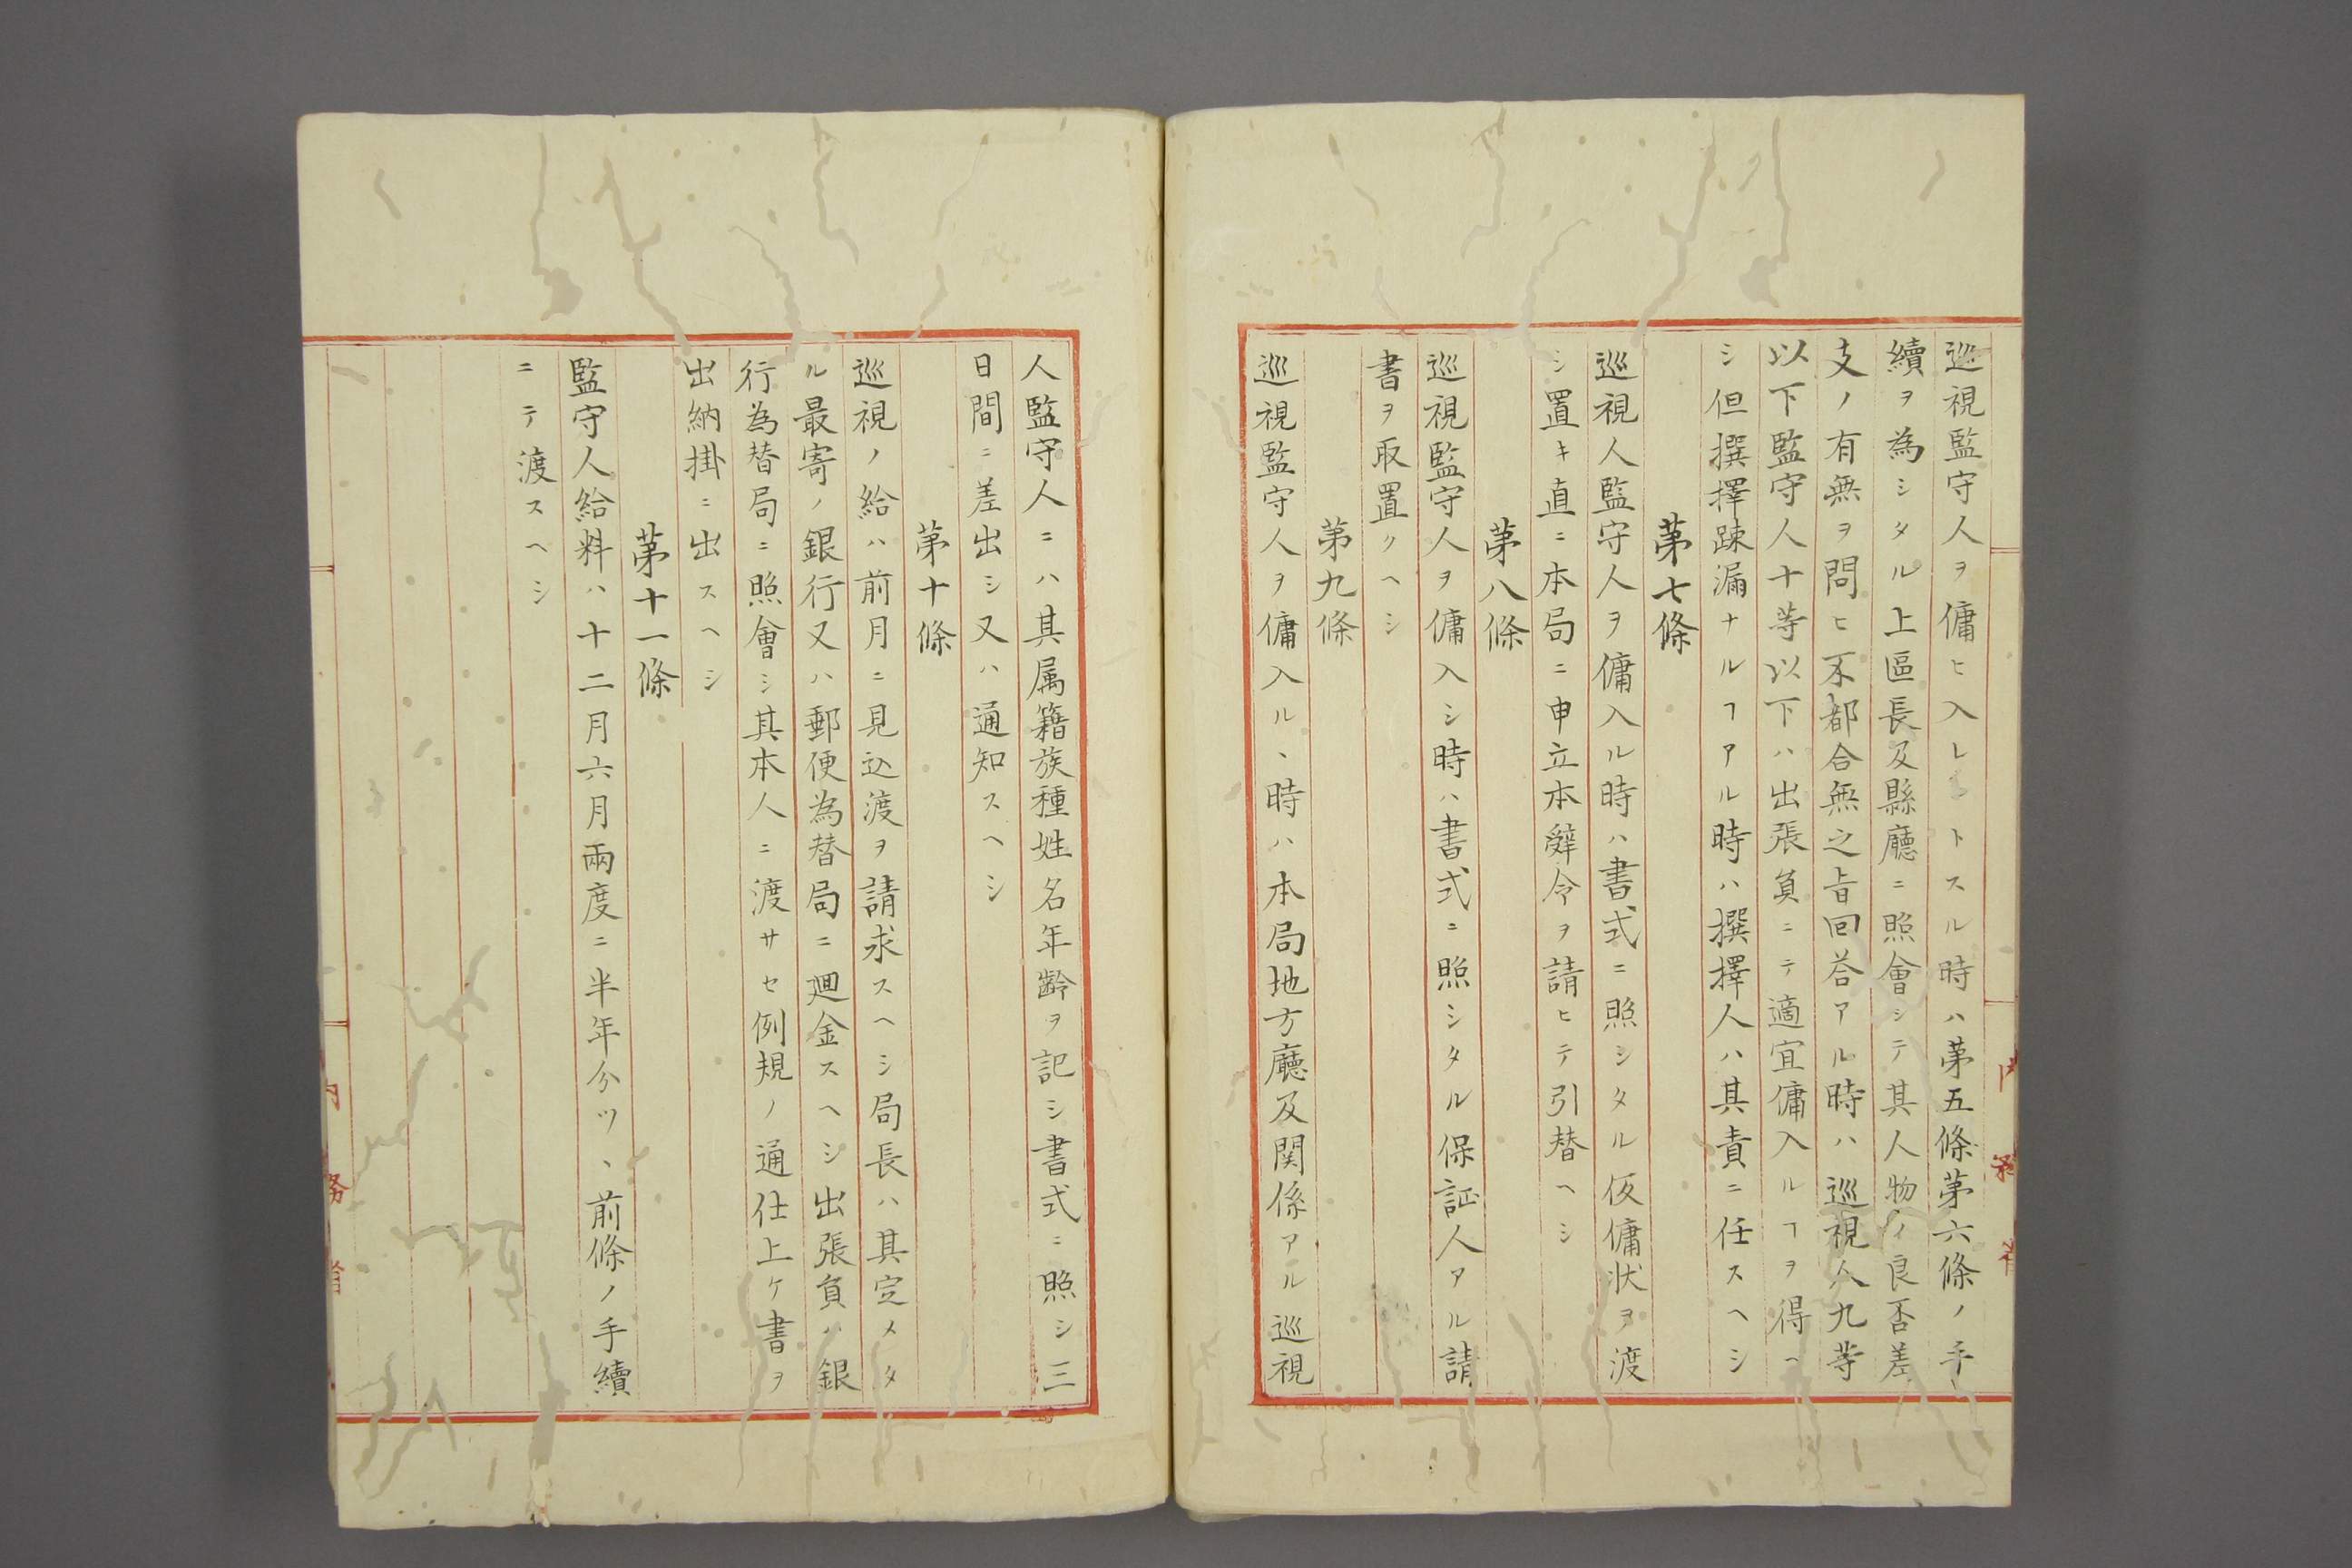 巡視監守人ヲ傭ヒ入レントスル時ハ苐五條苐六條ノ手
續ヲ為シタル上區長及縣廳ニ照會シテ其人物ノ良否差
支ノ有無ヲ問ヒ不都合無之旨回荅アル時ハ巡視人九等
以下監守人十等以下ハ出張負ニテ適宜傭入ルヿヲ得ヘ
シ但撰擇踈漏ナルヿアル時ハ撰擇人ハ其責ニ任スヘシ
苐七條
巡視人監守人ヲ傭入ル時ハ書式ニ照シタル仮傭状ヲ渡
シ置キ直ニ本局ニ申立本辭令ヲ請ヒテ引替ヘシ
苐八條
巡視監守人ヲ傭入シ時ハ書式ニ照シタル保証人アル請
書ヲ取置クヘシ
苐九條
巡視監守人ヲ傭入ル、時ハ本局地方廳及関係アル巡視
人監守人ニハ其属籍族種姓名年齢ヲ記シ書式ニ照シ三
日間ニ差出シ又ハ通知スヘシ
苐十條
巡視ノ給ハ前月ニ見込渡ヲ請求スヘシ局長ハ其定メタ
ル最寄ノ銀行又ハ郵便為替局ニ廻金スヘシ出張負ハ銀
行為替局ニ照會シ其本人ニ渡サセ例規ノ通仕上ケ書ヲ
出納掛ニ出スヘシ
苐十一條
監守人給料ハ十二月六月兩度ニ半年分ツ、前條ノ手續
ニテ渡スヘシ
内務省